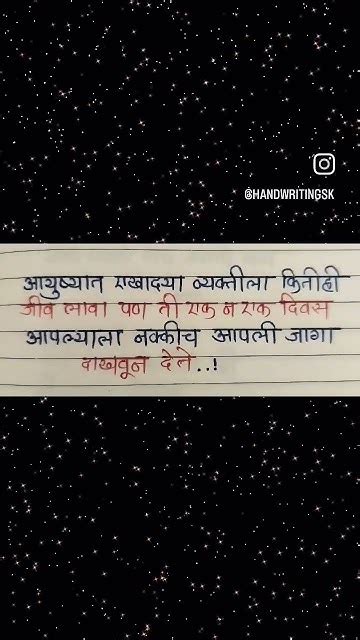 @HANDWRITINGSK
आयुष्यात एखादया व्यक्तीला कितीही
जीव लावा पण ती एक न एक दिवस
आपल्याला नक्कीच आपली जागा
दाखवून देते..!